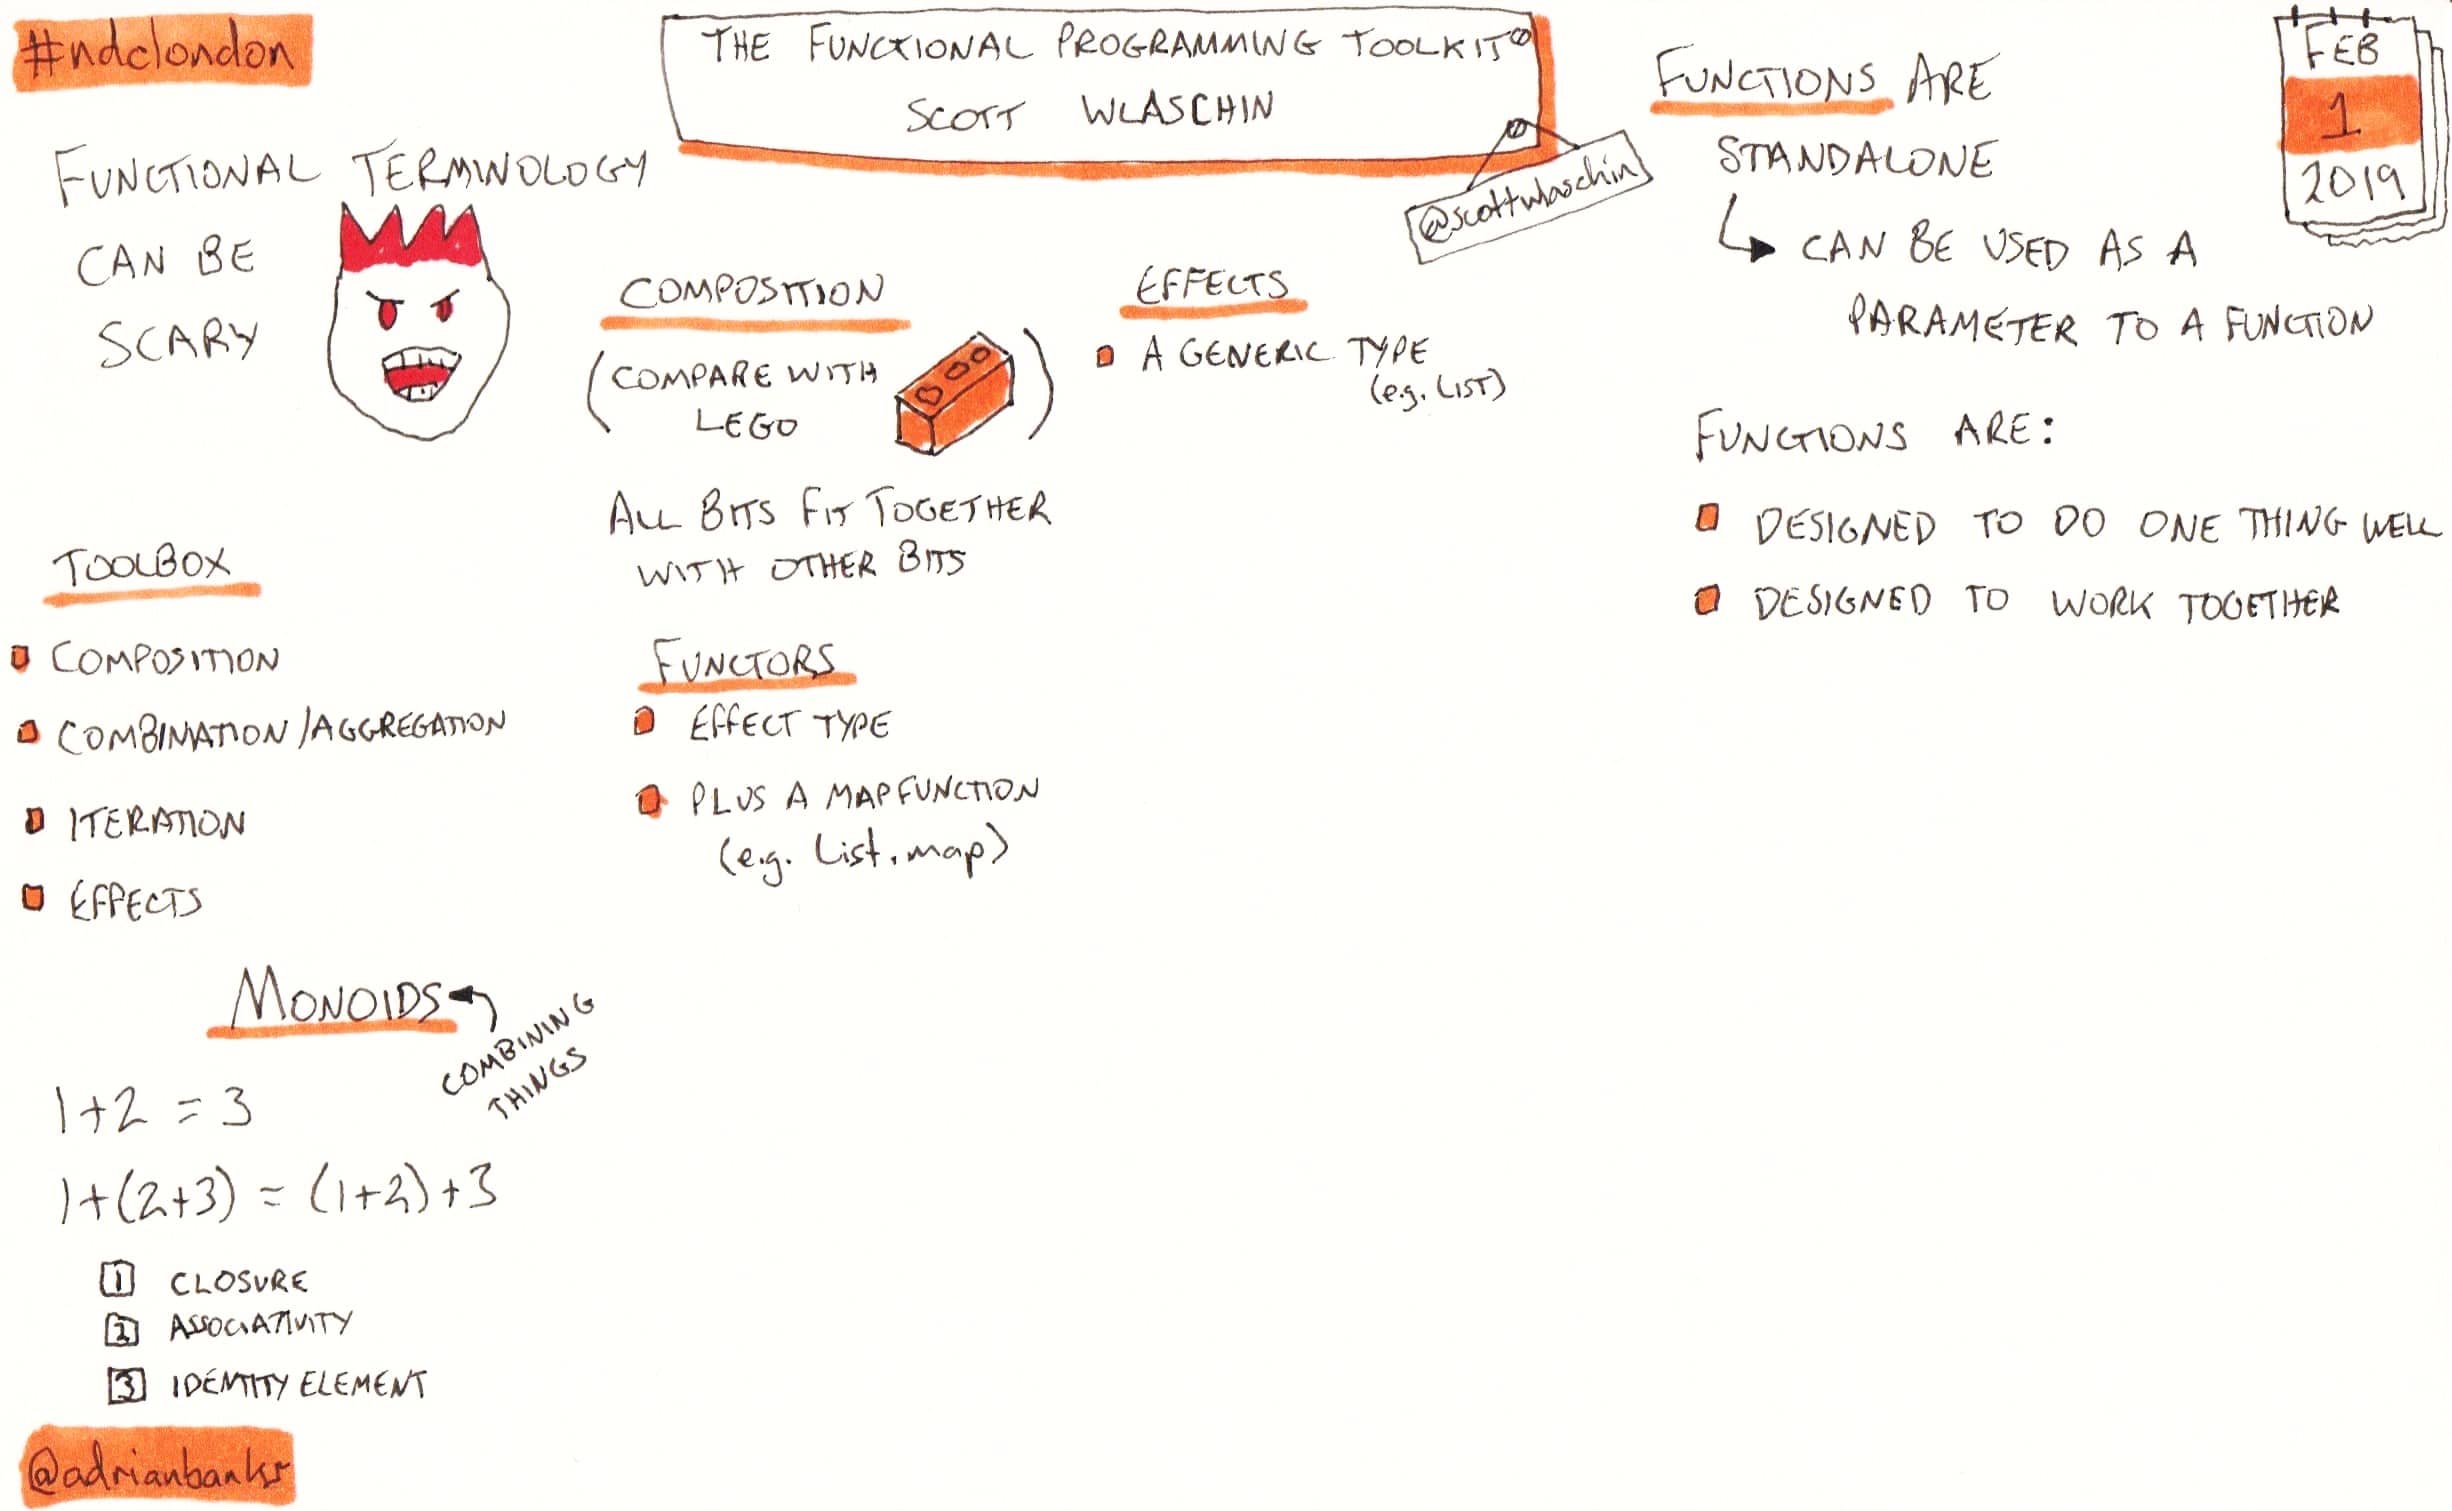 #ndclondon
THE FUNCTIONAL PROGRAMMING TOOLKIT
SCOTT WLASCHIN
@scottwlaschin
FEB
1
2019
FUNCTIONAL TERMINOLOGY
CAN BE
SCARY
TOOLBOX
COMPOSITION
COMBINATION/AGGREGATION
ITERATION
EFFECTS
MONOIDS
COMBINING
THINGS
1+2 = 3
1+(2+3) = (1+2)+3
1 CLOSURE
2 ASSOCIATIVITY
3 IDENTITY ELEMENT
@adrianbanks
COMPOSITION
(COMPARE WITH
LEGO)
ALL BITS FIT TOGETHER
WITH OTHER BITS
FUNCTORS
EFFECT TYPE
PLUS A MAP FUNCTION
(e.g. List.map)
EFFECTS
A GENERIC TYPE
(e.g. LIST)
FUNCTIONS ARE
STANDALONE
CAN BE USED AS A
PARAMETER TO A FUNCTION
FUNCTIONS ARE:
DESIGNED TO DO ONE THING WELL
DESIGNED TO WORK TOGETHER